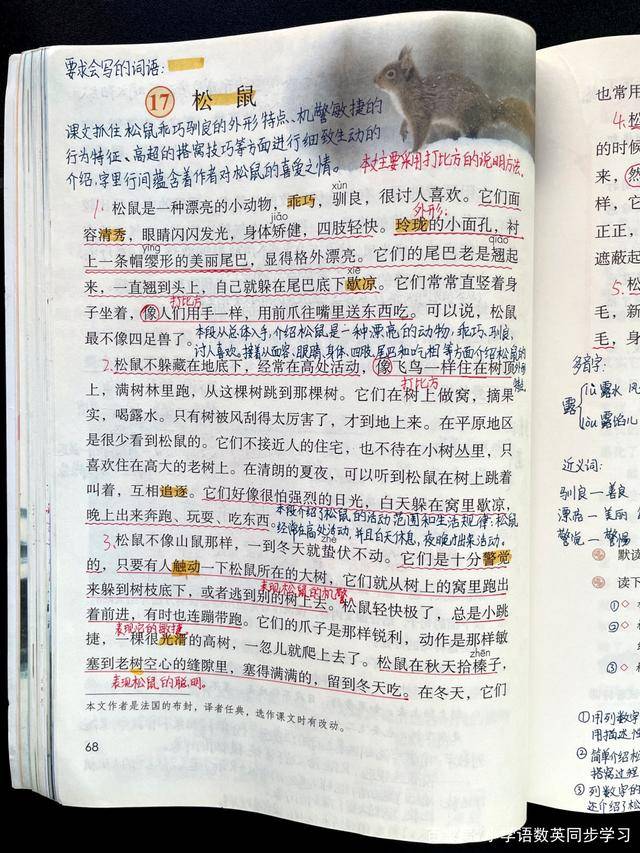 要求会写的词语:
17 松鼠
课文抓住松鼠乖巧驯良的外形特点、机警敏捷的
行为特征、高超的搭窝技巧等方面进行细致生动的
介绍,字里行间蕴含着作者对松鼠的喜爱之情。
本文主要采用打比方的说明方法。
xùn
1. 松鼠是一种漂亮的小动物,乖巧,驯良,很讨人喜欢。它们面
jiǎo
外形:
容清秀,眼睛闪闪发光,身体矫健,四肢轻快。玲珑的小面孔,衬
yīng
qiào
上一条帽缨形的美丽尾巴,显得格外漂亮。它们的尾巴老是翘起
xiē
来,一直翘到头上,自己就躲在尾巴底下歇凉。它们常常直竖着身
打比方
子坐着,像人们用手一样,用前爪往嘴里送东西吃。可以说,松鼠
最不像四足兽了。
本段从总体入手,介绍松鼠是一种漂亮的动物,乖巧、驯良,
讨人喜欢。接着从面容、眼睛、身体、四肢、尾巴和吃相等方面介绍松鼠的外形特点
2. 松鼠不躲藏在地底下,经常在高处活动,像飞鸟一样住在树顶
打比方
上,满树林里跑,从这棵树跳到那棵树。它们在树上做窝,摘果
实,喝露水。只有树被风刮得太厉害了,才到地上来。在平原地区
是很少看到松鼠的。它们不接近人的住宅,也不待在小树丛里,只
喜欢住在高大的老树上。在清朗的夏夜,可以听到松鼠在树上跳着
叫着,互相追逐。它们好像很怕强烈的日光,白天躲在窝里歇凉,
晚上出来奔跑、玩耍、吃东西。
本段介绍了松鼠的活动范围和生活规律:松鼠
经常在高处活动,并且白天休息,夜晚出来活动。
zhé
3. 松鼠不像山鼠那样,一到冬天就蛰伏不动。它们是十分警觉
的,只要有人触动一下松鼠所在的大树,它们就从树上的窝里跑出
表现松鼠的机警
来躲到树枝底下,或者逃到别的树上去。松鼠轻快极了,总是小跳
着前进,有时也连蹦带跑。它们的爪子是那样锐利,动作是那样敏
表现它的敏捷
捷,一棵很光滑的高树,一忽儿就爬上去了。松鼠在秋天拾榛子,
zhēn
塞到老树空心的缝隙里,塞得满满的,留到冬天吃。在冬天,它们
表现松鼠的聪明。
本文作者是法国的布封,译者任典,选作课文时有改动。
68
也常用
4. 松
的时候
来,然
样,它
正正,
遮蔽起
5. 松
毛,新
毛,身
多音字:
露 lù 露水 风
lòu 露馅儿
近义词:
驯良—善良
漂亮—美丽
警觉—警惕
默读
读下
①列数字
用描述性
②简单介绍松
搭窝过程
③列数字的
述介绍了松
学语数英同步学习